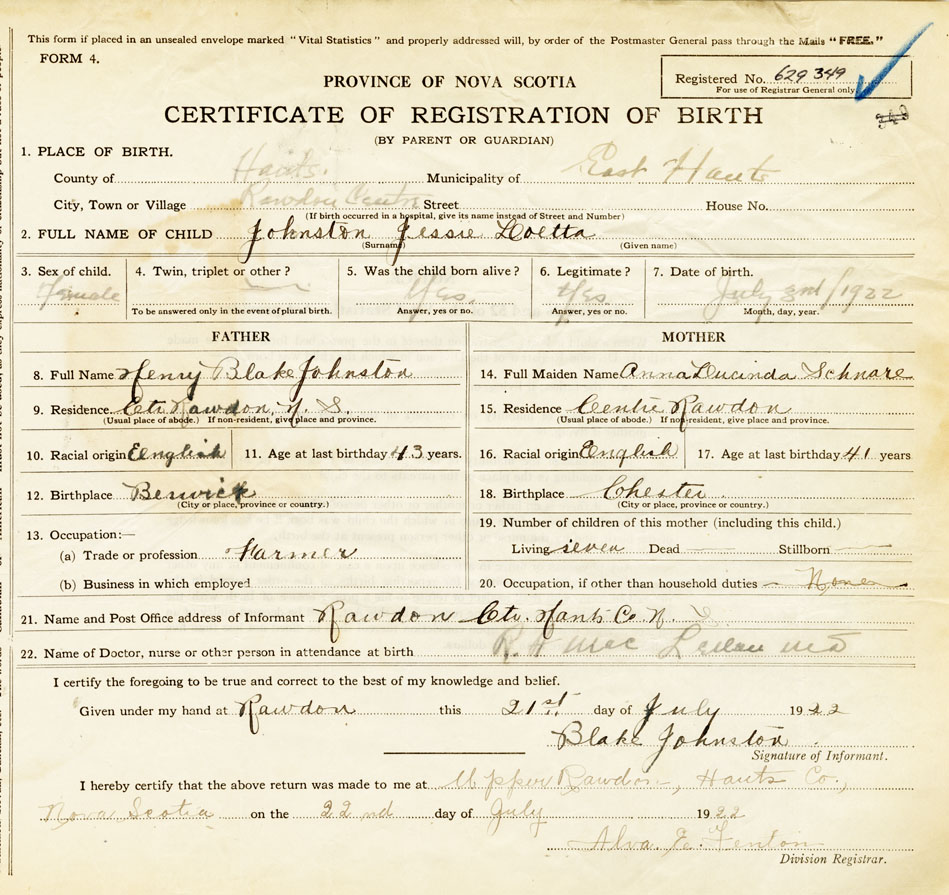 This form if placed in an unsealed envelope marked "Vital Statistics" and properly addressed will, by order of the Postmaster General pass through the Mails "FREE."
FORM 4.
PROVINCE OF NOVA SCOTIA
Registered No. 629349
For use of Registrar General only
CERTIFICATE OF REGISTRATION OF BIRTH
(BY PARENT OR GUARDIAN)
1. PLACE OF BIRTH.
County of Hants. Municipality of East Hants
City, Town or Village Rawdon Centre Street House No.
(If birth occurred in a hospital, give its name instead of Street and Number)
2. FULL NAME OF CHILD Johnston Jessie Loetta
(Surname) (Given name)
3. Sex of child. 4. Twin, triplet or other? 5. Was the child born alive? 6. Legitimate? 7. Date of birth.
Female Yes. Yes July 3rd/1922
To be answered only in the event of plural birth. Answer, yes or no. Answer, yes or no. Month, day, year.
FATHER
8. Full Name Henry Blake Johnston
9. Residence. Ctr Rawdon, N. S.
(Usual place of abode.) If non-resident, give place and province.
10. Racial origin English 11. Age at last birthday 43 years.
12. Birthplace Berwick
(City or place, province or country.)
13. Occupation:—
(a) Trade or profession Farmer
(b) Business in which employed
MOTHER
14. Full Maiden Name Anna Lucinda Schnare
15. Residence Centre Rawdon
(Usual place of abode.) If non-resident, give place and province.
16. Racial origin English 17. Age at last birthday 41 years
18. Birthplace Chester
(City or place, province or country.)
19. Number of children of this mother (including this child.)
Living seven Dead Stillborn
20. Occupation, if other than household duties None
21. Name and Post Office address of Informant Rawdon Ctr. Hants Co N. S
22. Name of Doctor, nurse or other person in attendance at birth R. H Mac Lellan MD
I certify the foregoing to be true and correct to the best of my knowledge and belief.
Given under my hand at Rawdon this 21st day of July 1922
Blake Johnston.
Signature of Informant.
I hereby certify that the above return was made to me at Upper Rawdon, Hants Co.,
Nova Scotia on the 22nd day of July 1922
Alva. E. Fenton
Division Registrar.